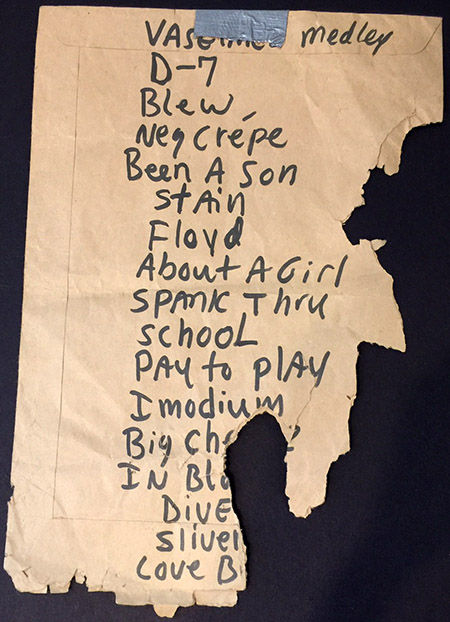 medley
D-7
Blew
Neg Crepe
Been A Son
StAin
Floyd
About A Girl
SPANK Thru
SCHOOL
PAY to PLAY
Imodium
Big
IN
DIVE
Love B